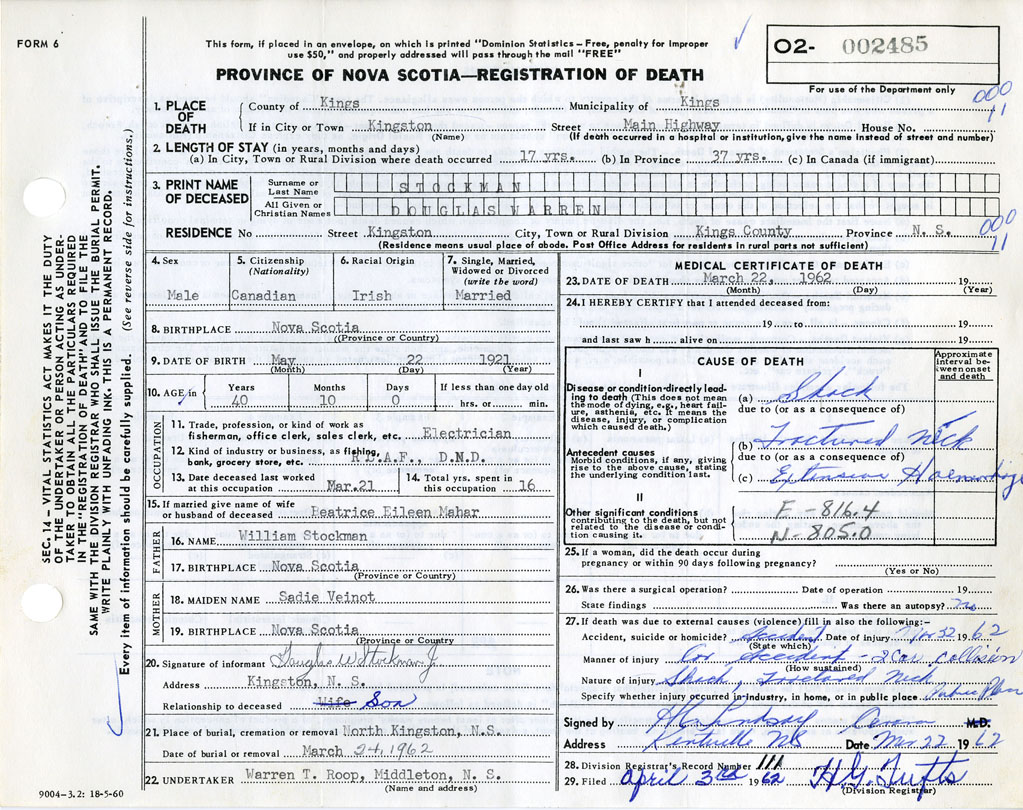 FORM 6
This form, if placed in an envelope, on which is printed "Dominion Statistics – Free, penalty for improper
use $50," and properly addressed will pass through the mail "FREE"
O2- 002485
For use of the Department only
PROVINCE OF NOVA SCOTIA—REGISTRATION OF DEATH
000
11
1. PLACE OF DEATH
County of Kings Municipality of Kings
If in City or Town Kingston (Name) Street Main Highway House No.
(If death occurred in a hospital or institution, give the name instead of street and number)
2. LENGTH OF STAY (in years, months and days)
(a) In City, Town or Rural Division where death occurred 17 yrs. (b) In Province 37 yrs. (c) In Canada (if immigrant)
3. PRINT NAME OF DECEASED
Surname or Last Name STOCKMAN
All Given or Christian Names DOUGLAS WARREN
000
11
RESIDENCE No Street Kingston City, Town or Rural Division Kings County Province N. S.
(Residence means usual place of abode. Post Office Address for residents in rural parts not sufficient)
SEC. 14 – VITAL STATISTICS ACT MAKES IT THE DUTY
OF THE UNDERTAKER OR PERSON ACTING AS UNDER-
TAKER "TO OBTAIN ALL THE PARTICULARS REQUIRED
IN THE "REGISTRATION OF DEATH" AND TO FILE THE
SAME WITH THE DIVISION REGISTRAR WHO SHALL ISSUE THE BURIAL PERMIT.
WRITE PLAINLY WITH UNFADING INK. THIS IS A PERMANENT RECORD.
Every item of information should be carefully supplied. (See reverse side for instructions.)
4. Sex
Male
5. Citizenship
(Nationality)
Canadian
6. Racial Origin
Irish
7. Single, Married,
Widowed or Divorced
(write the word)
Married
8. BIRTHPLACE Nova Scotia
(Province or Country)
9. DATE OF BIRTH May 22 1921
(Month) (Day) (Year)
10. AGE in
Years Months Days If less than one day old
40 10 0 hrs. or min.
OCCUPATION
11. Trade, profession, or kind of work as
fisherman, office clerk, sales clerk, etc. Electrician
12. Kind of industry or business, as fishing,
bank, grocery store, etc. R.C.A.F., D.N.D.
13. Date deceased last worked
at this occupation Mar.21
14. Total yrs. spent in
this occupation 16
15. If married give name of wife
or husband of deceased Beatrice Eileen Mahar
FATHER
16. NAME William Stockman
17. BIRTHPLACE Nova Scotia
(Province or Country)
MOTHER
18. MAIDEN NAME Sadie Veinot
19. BIRTHPLACE Nova Scotia
(Province or Country)
20. Signature of informant Douglas W Stockman Jr.
Address Kingston, N. S.
Relationship to deceased Wife Son
21. Place of burial, cremation or removal North Kingston, N.S.
Date of burial or removal March 24, 1962
22. UNDERTAKER Warren T. Roop, Middleton, N. S.
(Name and address)
9004-3.2: 18-5-60
MEDICAL CERTIFICATE OF DEATH
23. DATE OF DEATH March 22, 1962 19
(Month) (Day) (Year)
24. I HEREBY CERTIFY that I attended deceased from:
19 to 19
and last saw h alive on 19
CAUSE OF DEATH
Approximate
interval be-
tween onset
and death
I
Disease or condition directly lead-
ing to death (This does not mean
the mode of dying, e.g., heart failure, asthenia, etc. It means the
disease, injury, or complication
which caused death.)
(a) Shock
due to (or as a consequence of)
Antecedent causes
Morbid conditions, if any, giving
rise to the above cause, stating
the underlying condition last.
(b) Fractured Neck
due to (or as a consequence of)
(c) Extensive Haemorrhage
II
Other significant conditions
contributing to the death, but not
related to the disease or condi-
tion causing it.
E - 816.4
N - 805.0
25. If a woman, did the death occur during
pregnancy or within 90 days following pregnancy?
(Yes or No)
26. Was there a surgical operation? Date of operation 19
State findings Was there an autopsy? No
27. If death was due to external causes (violence) fill in also the following:-
Accident, suicide or homicide? Accident Date of injury Mar 22 1962
(State which)
Manner of injury Car accident - 2 Car collision
(How sustained)
Nature of injury Shock, Fractured Neck
Specify whether injury occurred in industry, in home, or in public place Public Place
Signed by M.D.
Address Kentville NS Date Mar 22 1962
28. Division Registrar's Record Number 111
29. Filed April 3rd 1962 H.G. Tufts
(Division Registrar)